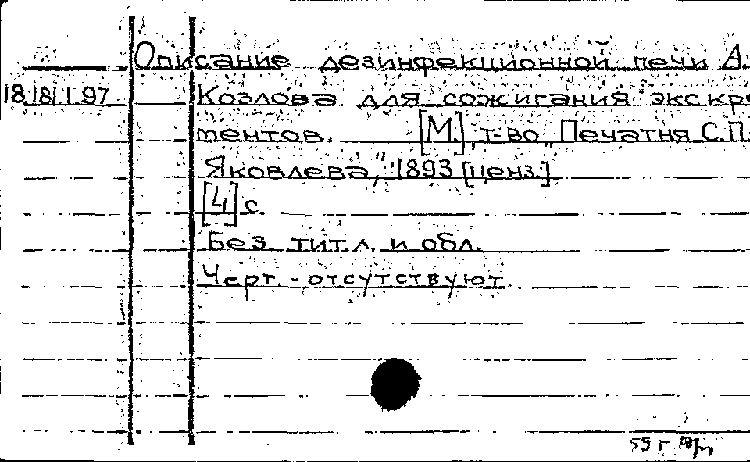 Описание дезинфекционной печи А.
18.181.1.97
Козлова для сожигания экскре
ментов. [М.], т-во „Печатня С.П.
Яковлева", 1893 [ценз.]
[4] с.
Без тит.л. и обл.
Черт. - отсутствуют
59 г.